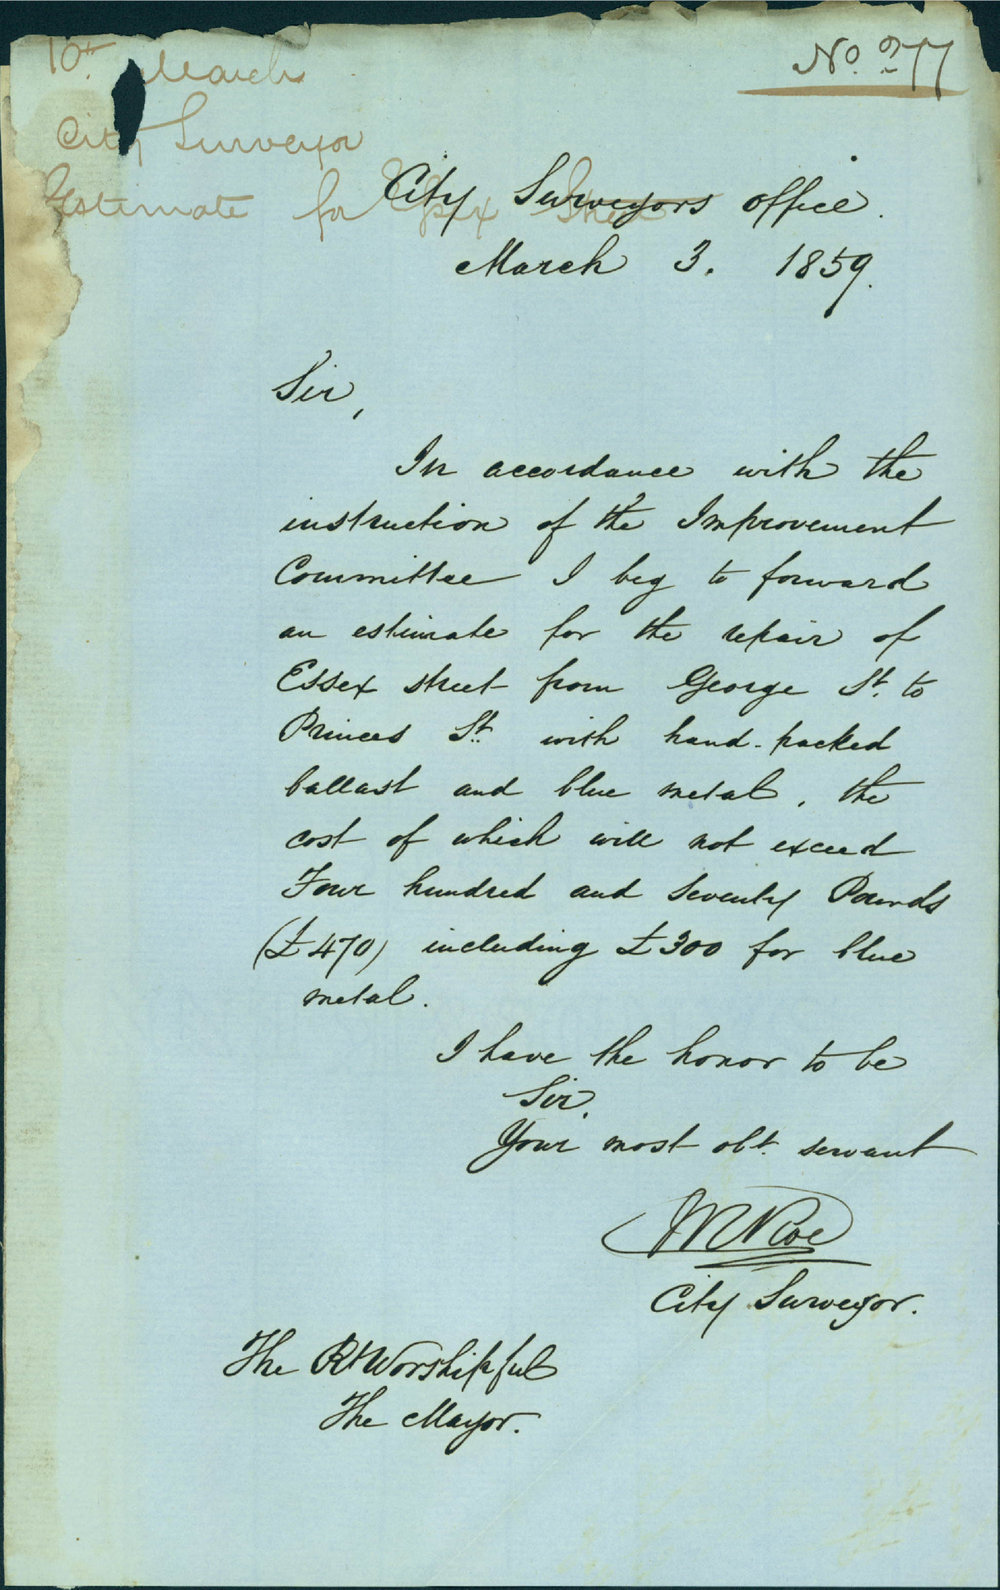 10th March
City Surveyor
Estimate for Essex Street
No. 277
City Surveyors office.
March 3. 1859.
Sir,
In accordance with the
instruction of the Improvement
Committee I beg to forward
an estimate for the repair of
Essex street from George St. to
Princes St. with hand-packed
ballast and blue metal, the
cost of which will not exceed
Four hundred and Seventy Pounds
(£470) including £300 for blue
metal.
I have the honor to be
Sir,
Your most obt. servant
City Surveyor.
The Rt Worshipful
The Mayor.